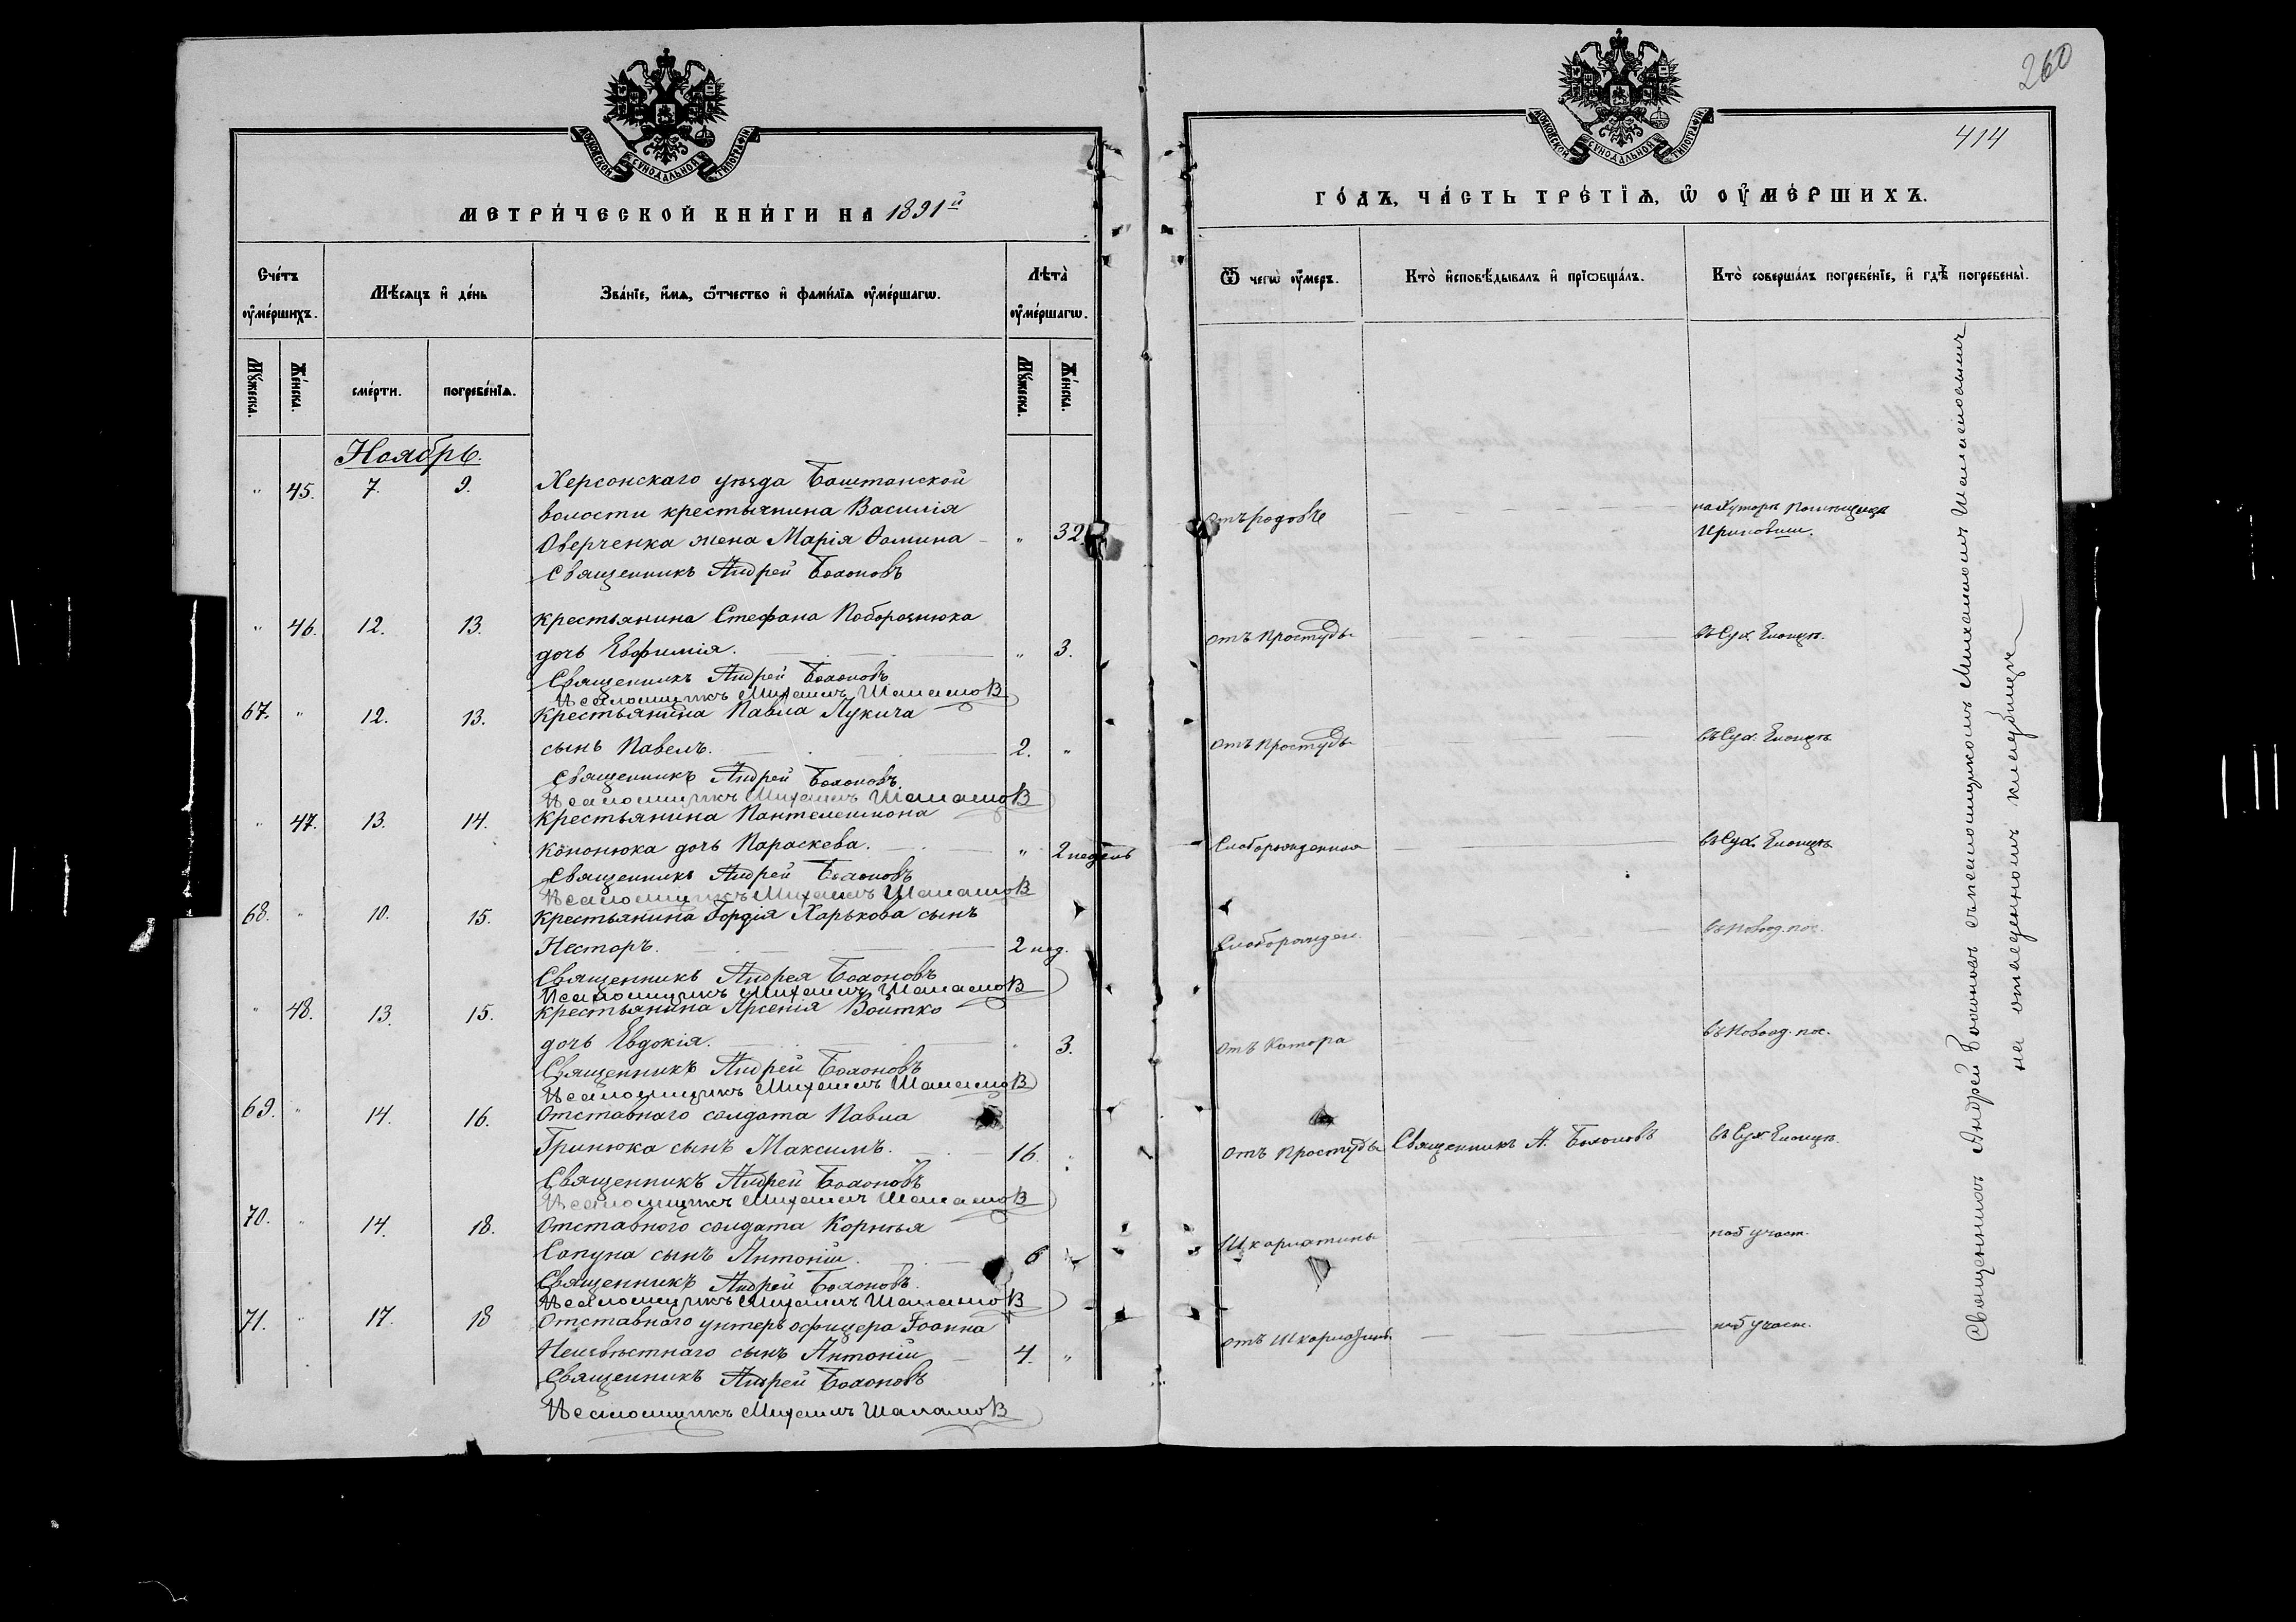 МОСКОВСКОЙ СУНОДАЛЬНОЙ ТИПОГРАФІИ
МЕТРИ́ЧЕСКОЙ КНИ́ГИ НА 1891й
Сче́тъ ᲂу҆ме́ршихъ.
Мѣ́сяцъ и҆ де́нь
Зва́нїе, и҆́мѧ, ѻ҆́тчество и҆ фами́лїѧ ᲂу҆ме́ршагѡ.
Лѣта̀ ᲂу҆ме́ршагѡ.
Мꙋ́жеска.
Же́нска.
сме́рти.
погребе́нїѧ.
Мꙋ́жеска.
Же́нска.
Ноябрь.
" 45. 7. 9. Херсонскаго уѣзда Баштанской
волости крестьянина Василія
Оверченка жена Марія Ѳомина " 32
Священникъ Андрей Болоновъ
" 46. 12. 13. Крестьянина Стефана
дочь Евфимія. " 3.
Священникъ Андрей Болоновъ
Псаломщикъ Михаилъ Шаламов
67. " 12. 13. Крестьянина Павла Лукича
сынъ Павелъ. 2. "
Священникъ Андрей Болоновъ
Псаломщикъ Михаилъ Шаламов
" 47. 13. 14. Крестьянина Пантелеимона
Кононюка дочь Параскева. " 2 недель
Священникъ Андрей Болоновъ
Псаломщикъ Михаилъ Шаламов
68. " 10. 15. Крестьянина Гордія Харькова сынъ
Несторъ. 2 нед.
Священникъ Андрей Болоновъ
Псаломщикъ Михаилъ Шаламов
" 48. 13. 15. Крестьянина Арсенія Войтко
дочь Евдокія. " 3.
Священникъ Андрей Болоновъ
Псаломщикъ Михаилъ Шаламов
69. " 14. 16. Отставнаго солдата Павла
Гринюка сынъ Максимъ. 16.
Священникъ Андрей Болоновъ
Псаломщикъ Михаилъ Шаламов
70. " 14. 18. Отставного солдата Корнѣя
Сапуна сынъ Антоній. 6
Священникъ Андрей Болоновъ
Псаломщикъ Михаилъ Шаламов
71. " 17. 18 Отставнаго унтеръ офицера Іоанна
Неизвѣстнаго сынъ Антоній 4. "
Священникъ Андрей Болоновъ
Псаломщикъ Михаилъ Шаламов
260
414
МОСКОВСКОЙ СУНОДАЛЬНОЙ ТИПОГРАФІИ
ГО́ДЪ, ЧА́СТЬ ТРЕ́ТЇѦ, Ѡ҆ ОУ҆МЕ́РШИХЪ.
Ѿ чегѡ̀ ᲂу҆́меръ.
Кто̀ и҆сповѣ́дывалъ и҆ прїѡбща́лъ.
Кто̀ соверша́лъ погребе́нїе, и҆ гдѣ̀ погребены̀.
Отъ родовъ на хуторѣ
отъ Простуды въ Сух. Еланцѣ.
отъ Простуды въ Сух. Еланцѣ
Слаборожденная въ Сух. Еланцѣ
Слаборожден. въ Новоод. пос.
въ Новоод. пос.
отъ Простуды Священникъ А. Болоновъ въ Сух. Еланцѣ.
Шкарлатины участ.
отъ Шкарлатины участ.
Священникъ Андрей Болоновъ съ псаломщикомъ Михаиломъ Шаламовымъ
на отведенномъ кладбищѣ